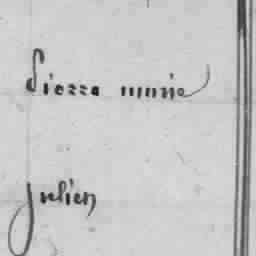 Pierre marie
Julien